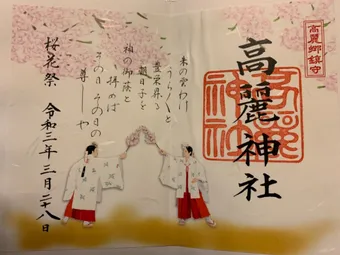 高麗郷鎮守
高麗神社
高麗
神社
朱の雲わけ
うらうらと
豊栄昇る
朝日子を
神の御蔭と
拝めば
その日その日の
尊しや
桜花祭 令和三年三月二十八日